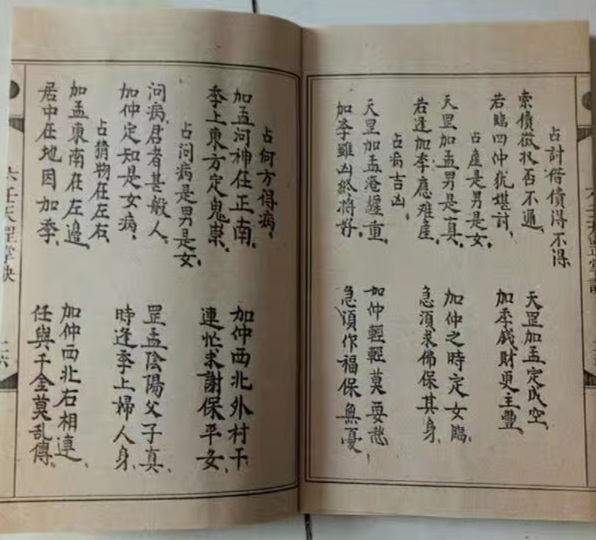 占討借債得不得
索債徵收否不通、
天罡加孟定成空、
若臨四仲犹堪討、
加季戲財更主豐、
占產是男是女、
天罡加孟男是真、
加仲之時定女臨、
若逢加季應难產、
急須求佛保其身、
占病吉凶、
天罡加孟淹纏重、
加仲輕輕莫要愁、
加季雖凶終將好、
急須作福保無憂、
占何方得病、
加孟河神在正南、
加仲西北外村干、
季上東方定鬼祟、
連忙求謝保平安、
占问病是男是女、
问病君者甚敏人、
罡孟陰陽父子真、
加仲定知是女病、
時逢季上婦人身、
占猜物在左右、
加孟東南在左邊、
加仲西北右相連、
居中在地因加季、
任與千金莫乱傳、
六壬天罡掌訣
二六